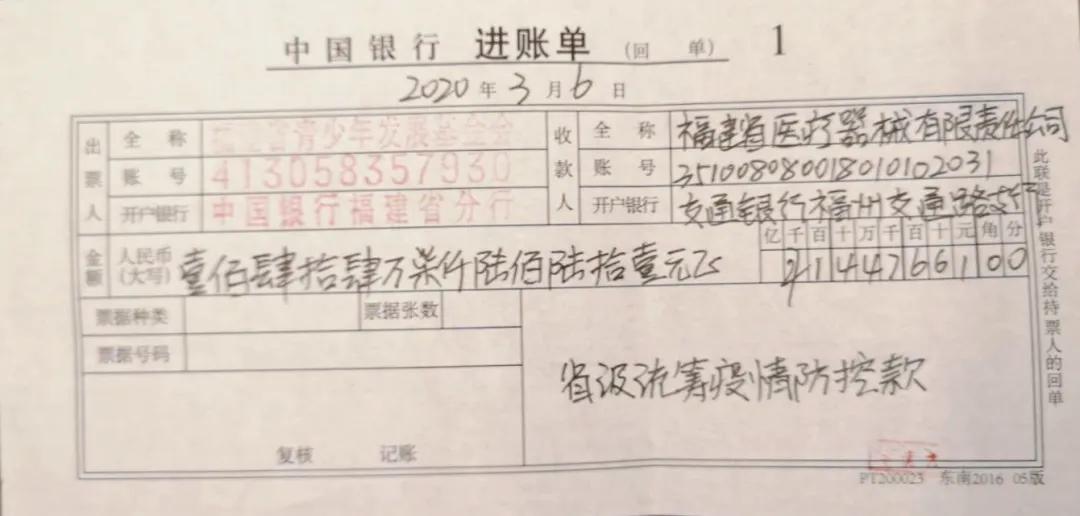 中国银行 进账单 (回 单) 1
2020 年 3 月 6 日
出票人 全 称 福建省青少年发展基金会 收款人 全 称 福建省医疗器械有限责任公司
账 号 413058357930 账 号 351008080018010102031
开户银行 中国银行福建省分行 开户银行 交通银行福州交通路支行
金额 人民币(大写) 壹佰肆拾肆万柒仟陆佰陆拾壹元 亿千百十万千百十元角分
144766100
票据种类 票据张数
票据号码
省级统筹疫情防控款
复核 记账
PT200023 东南2016 05版
此联是开户银行交给持票人的回单